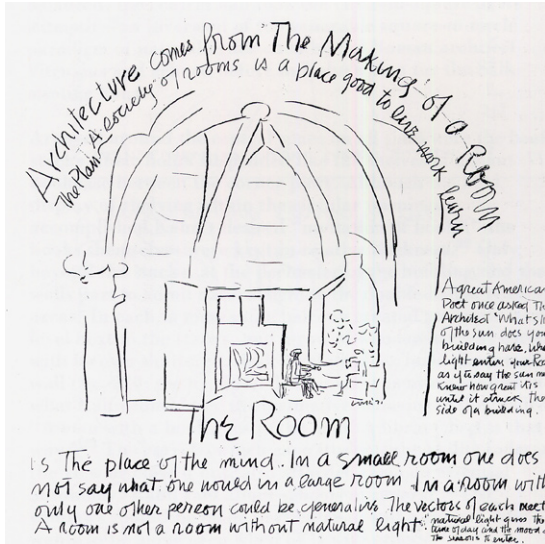 Architecture comes from The Making of a Room
The Plan A society of rooms is a place good to live work learn
A great American
Poet once asked The
Architect 'What sli
of the sun does you
building have, wha
light enters your Roo
as if to say the sun ne
knew how great it is
until it struck the
side of a building.
The Room
is The place of the mind. In a small room one does
not say what one would in a large room In a room with
only one other person could be generative The vectors of each meet
A room is not a room without natural light.
natural light gives the
time of day and the mood o
The seasons to enter.